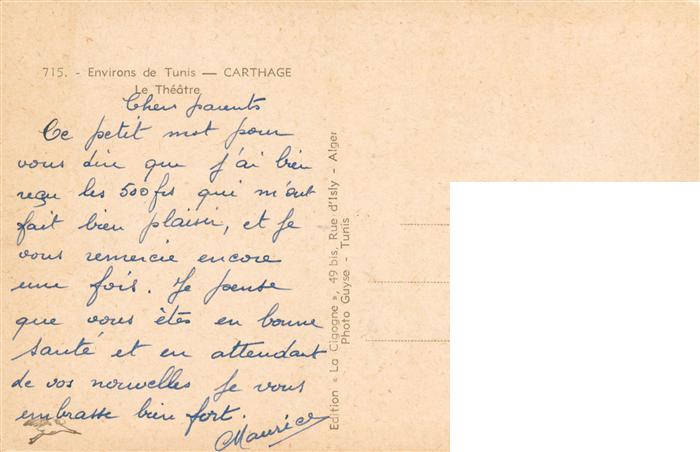 715. - Environs de Tunis — CARTHAGE
Le Théâtre
Chers parents
Ce petit mot pour
vous dire que j'ai bien
reçu les 500 frs qui m'ont
fait bien plaisir, et je
vous remercie encore
une fois. Je pense
que vous êtes en bonne
santé et en attendant
de vos nouvelles je vous
embrasse bien fort.
Maurice
Edition « La Cigogne », 49 bis, Rue d'Isly - Alger
Photo Guyse - Tunis